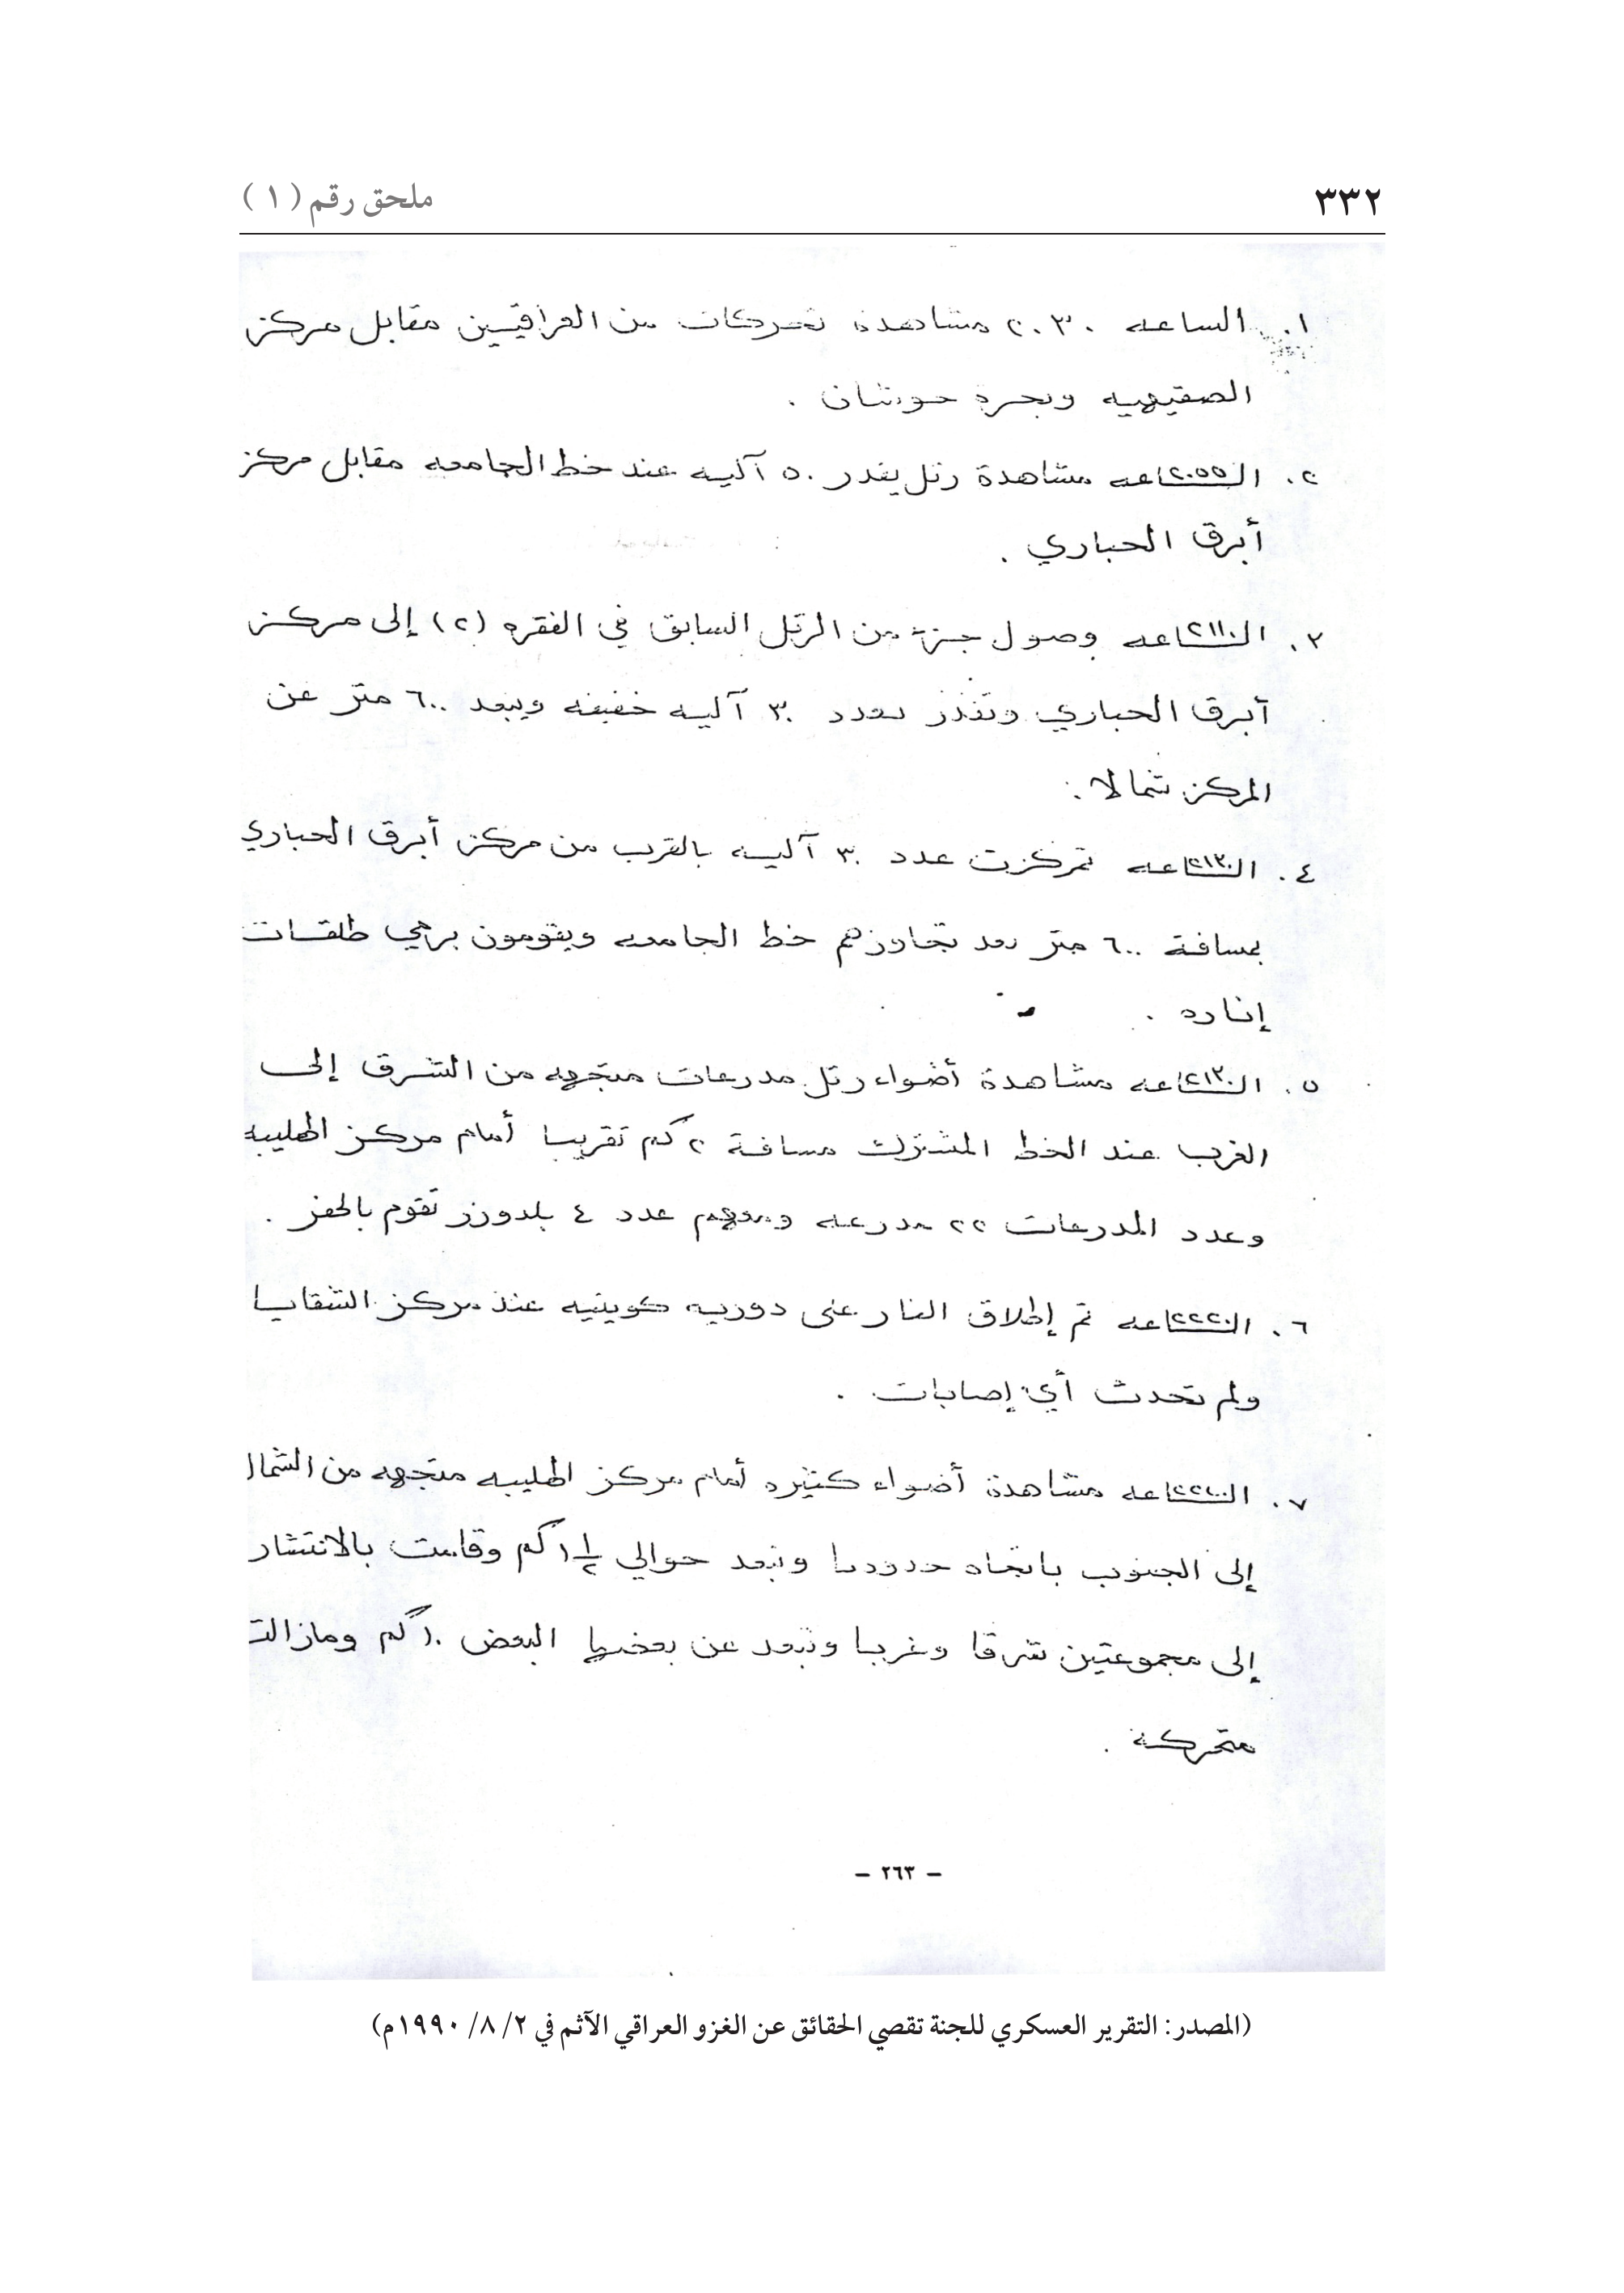 ٣٣٢
ملحق رقم (١)
١. الساعه ٢٠٣٠ مشاهدة تحركات من العراقيين مقابل مركز
الصقيهيه وبحرة حوشان .
٢. الساعه ٢٠٥٥ مشاهدة رتل يقدر ٥٠ آليه عند خط الجامعه مقابل مركز
أبرق الحباري .
٣. الساعه ٢١١٠ وصول جزء من الرتل السابق في الفقره (٢) إلى مركز
أبرق الحباري وتقدر بعدد ٣٠ آليه خفيفه ويبعد ٦٠٠ متر عن
المركز شمالا .
٤. الساعه ٢١٣٠ تمركزت عدد ٣٠ آليه بالقرب من مركز أبرق الحباري
بمسافة ٦٠٠ متر بعد تجاوزهم خط الجامعه ويقومون برمي طلقات
إناره .
٥. الساعه ٢١٣٠ مشاهدة أضواء رتل مدرعات متجهه من الشرق إلى
الغرب عند الخط المشترك مسافة ٢ كم تقريبا أمام مركز الهليبه
وعدد المدرعات ٢٢ مدرعه ومعهم عدد ٤ بلدوزر تقوم بالحفر .
٦. الساعه ٢٢٢٠ تم إطلاق النار على دوريه كويتيه عند مركز الشقايا
ولم تحدث أي إصابات .
٧. الساعه مشاهدة أضواء كثيره أمام مركز الهليبه متجهه من الشمال
إلى الجنوب باتجاه حدودنا وتبعد حوالي ١ ١/٢ كم وقامت بالانتشار
إلى مجموعتين شرقا وغربا وتبعد عن بعضها البعض ١٠ كم ومازالت
متحركة .
– ٢٦٣ –
(المصدر: التقرير العسكري للجنة تقصي الحقائق عن الغزو العراقي الآثم في ٢/ ٨/ ١٩٩٠م)